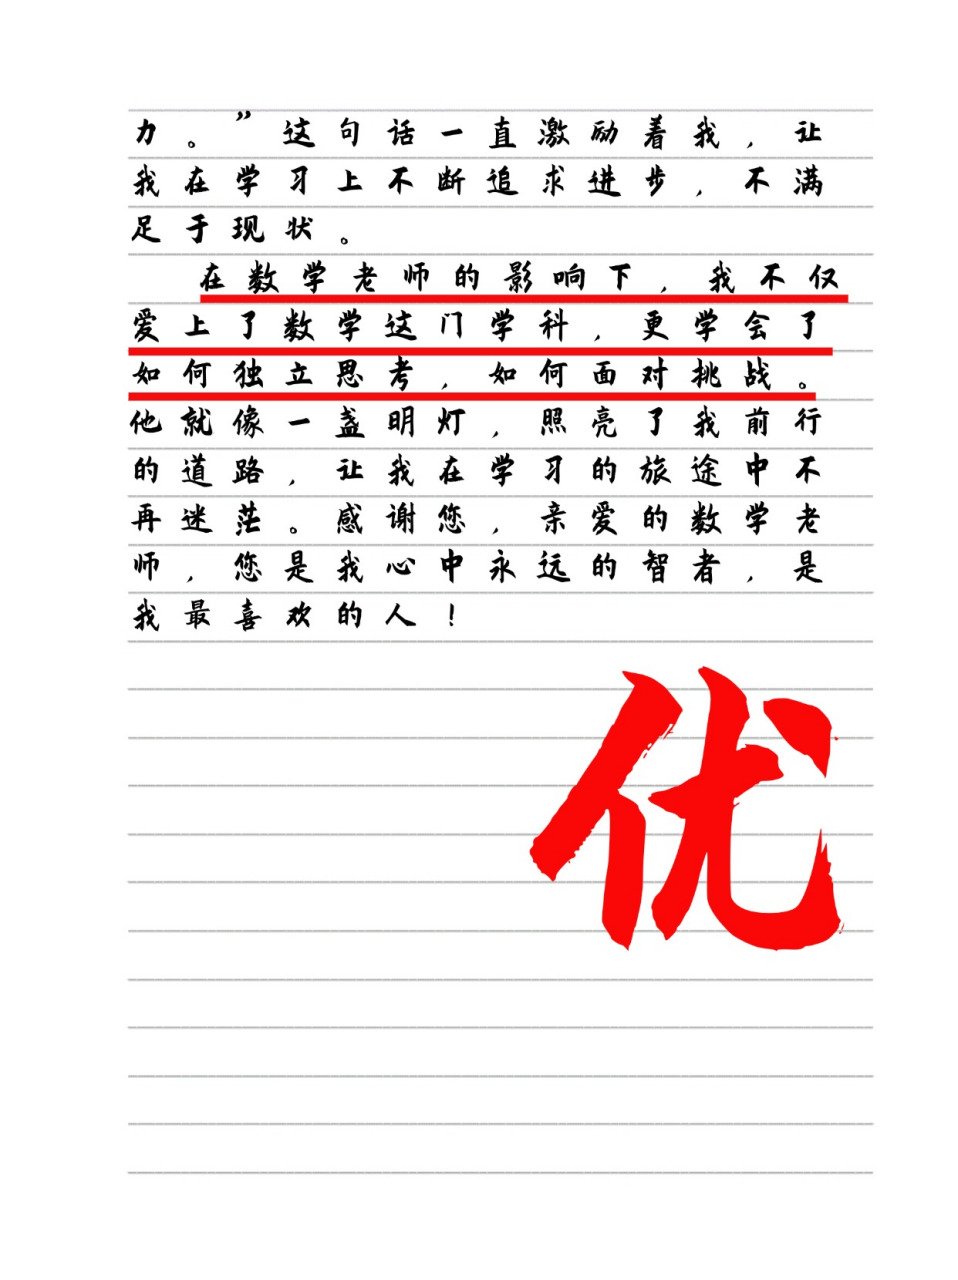 力。”这句话一直激励着我，让
我在学习上不断追求进步，不满
足于现状。
在数学老师的影响下，我不仅
爱上了数学这门学科，更学会了
如何独立思考，如何面对挑战。
他就像一盏明灯，照亮了我前行
的道路，让我在学习的旅途中不
再迷茫。感谢您，亲爱的数学老
师，您是我心中永远的智者，是
我最喜欢的人！
优